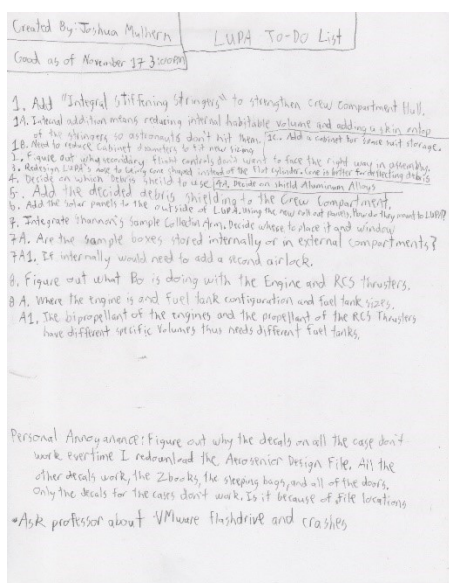 Created By: Joshua Mulhern
LUPA TO-DO List
Good as of November 17 3:00pm
1. Add "Integral Stiffening Stringers" to strengthen Crew Compartment Hull.
1A. Internal addition means reducing internal habitable volume and adding a skin ontop
of the stringers so astronauts don't hit them.
1C. Add a cabinet for space suit storage.
1B. Need to reduce Cabinet diameters to fit new sizing
2. Figure out why secondary flight controls don't want to face the right way in assembly.
3. Redesign LUPA's nose to being cone shaped instead of the flat cylinder. Cone is better for deflecting debris
4. Decide which Debris shield to use
4A. Decide on shield Aluminum Alloys
5. Add the decided debris shielding to the Crew Compartment.
6. Add the solar panels to the outside of LUPA. Using the new roll out panels. How do they mount to LUPA?
7. Integrate Shannon's Sample Collection Arm. Decide where to place it and window
7A. Are the sample boxes stored internally or in external compartments?
7A1. If internally would need to add a second airlock.
8. Figure out what Bo is doing with the Engine and RCS thrusters.
8A. Where the engine is and Fuel tank configuration and fuel tank sizes.
A1. The bipropellant of the engines and the propellant of the RCS Thrusters
have different specific volumes thus needs different fuel tanks.
Personal Annoyanance: Figure out why the decals on all the case don't
work evertime I redownload the Aerosenior Design File. All the
other decals work, the Zbooks, the sleeping bags, and all of the doors.
Only the decals for the cases don't work. Is it because of file locations
•Ask professor about VMware flashdrive and crashes